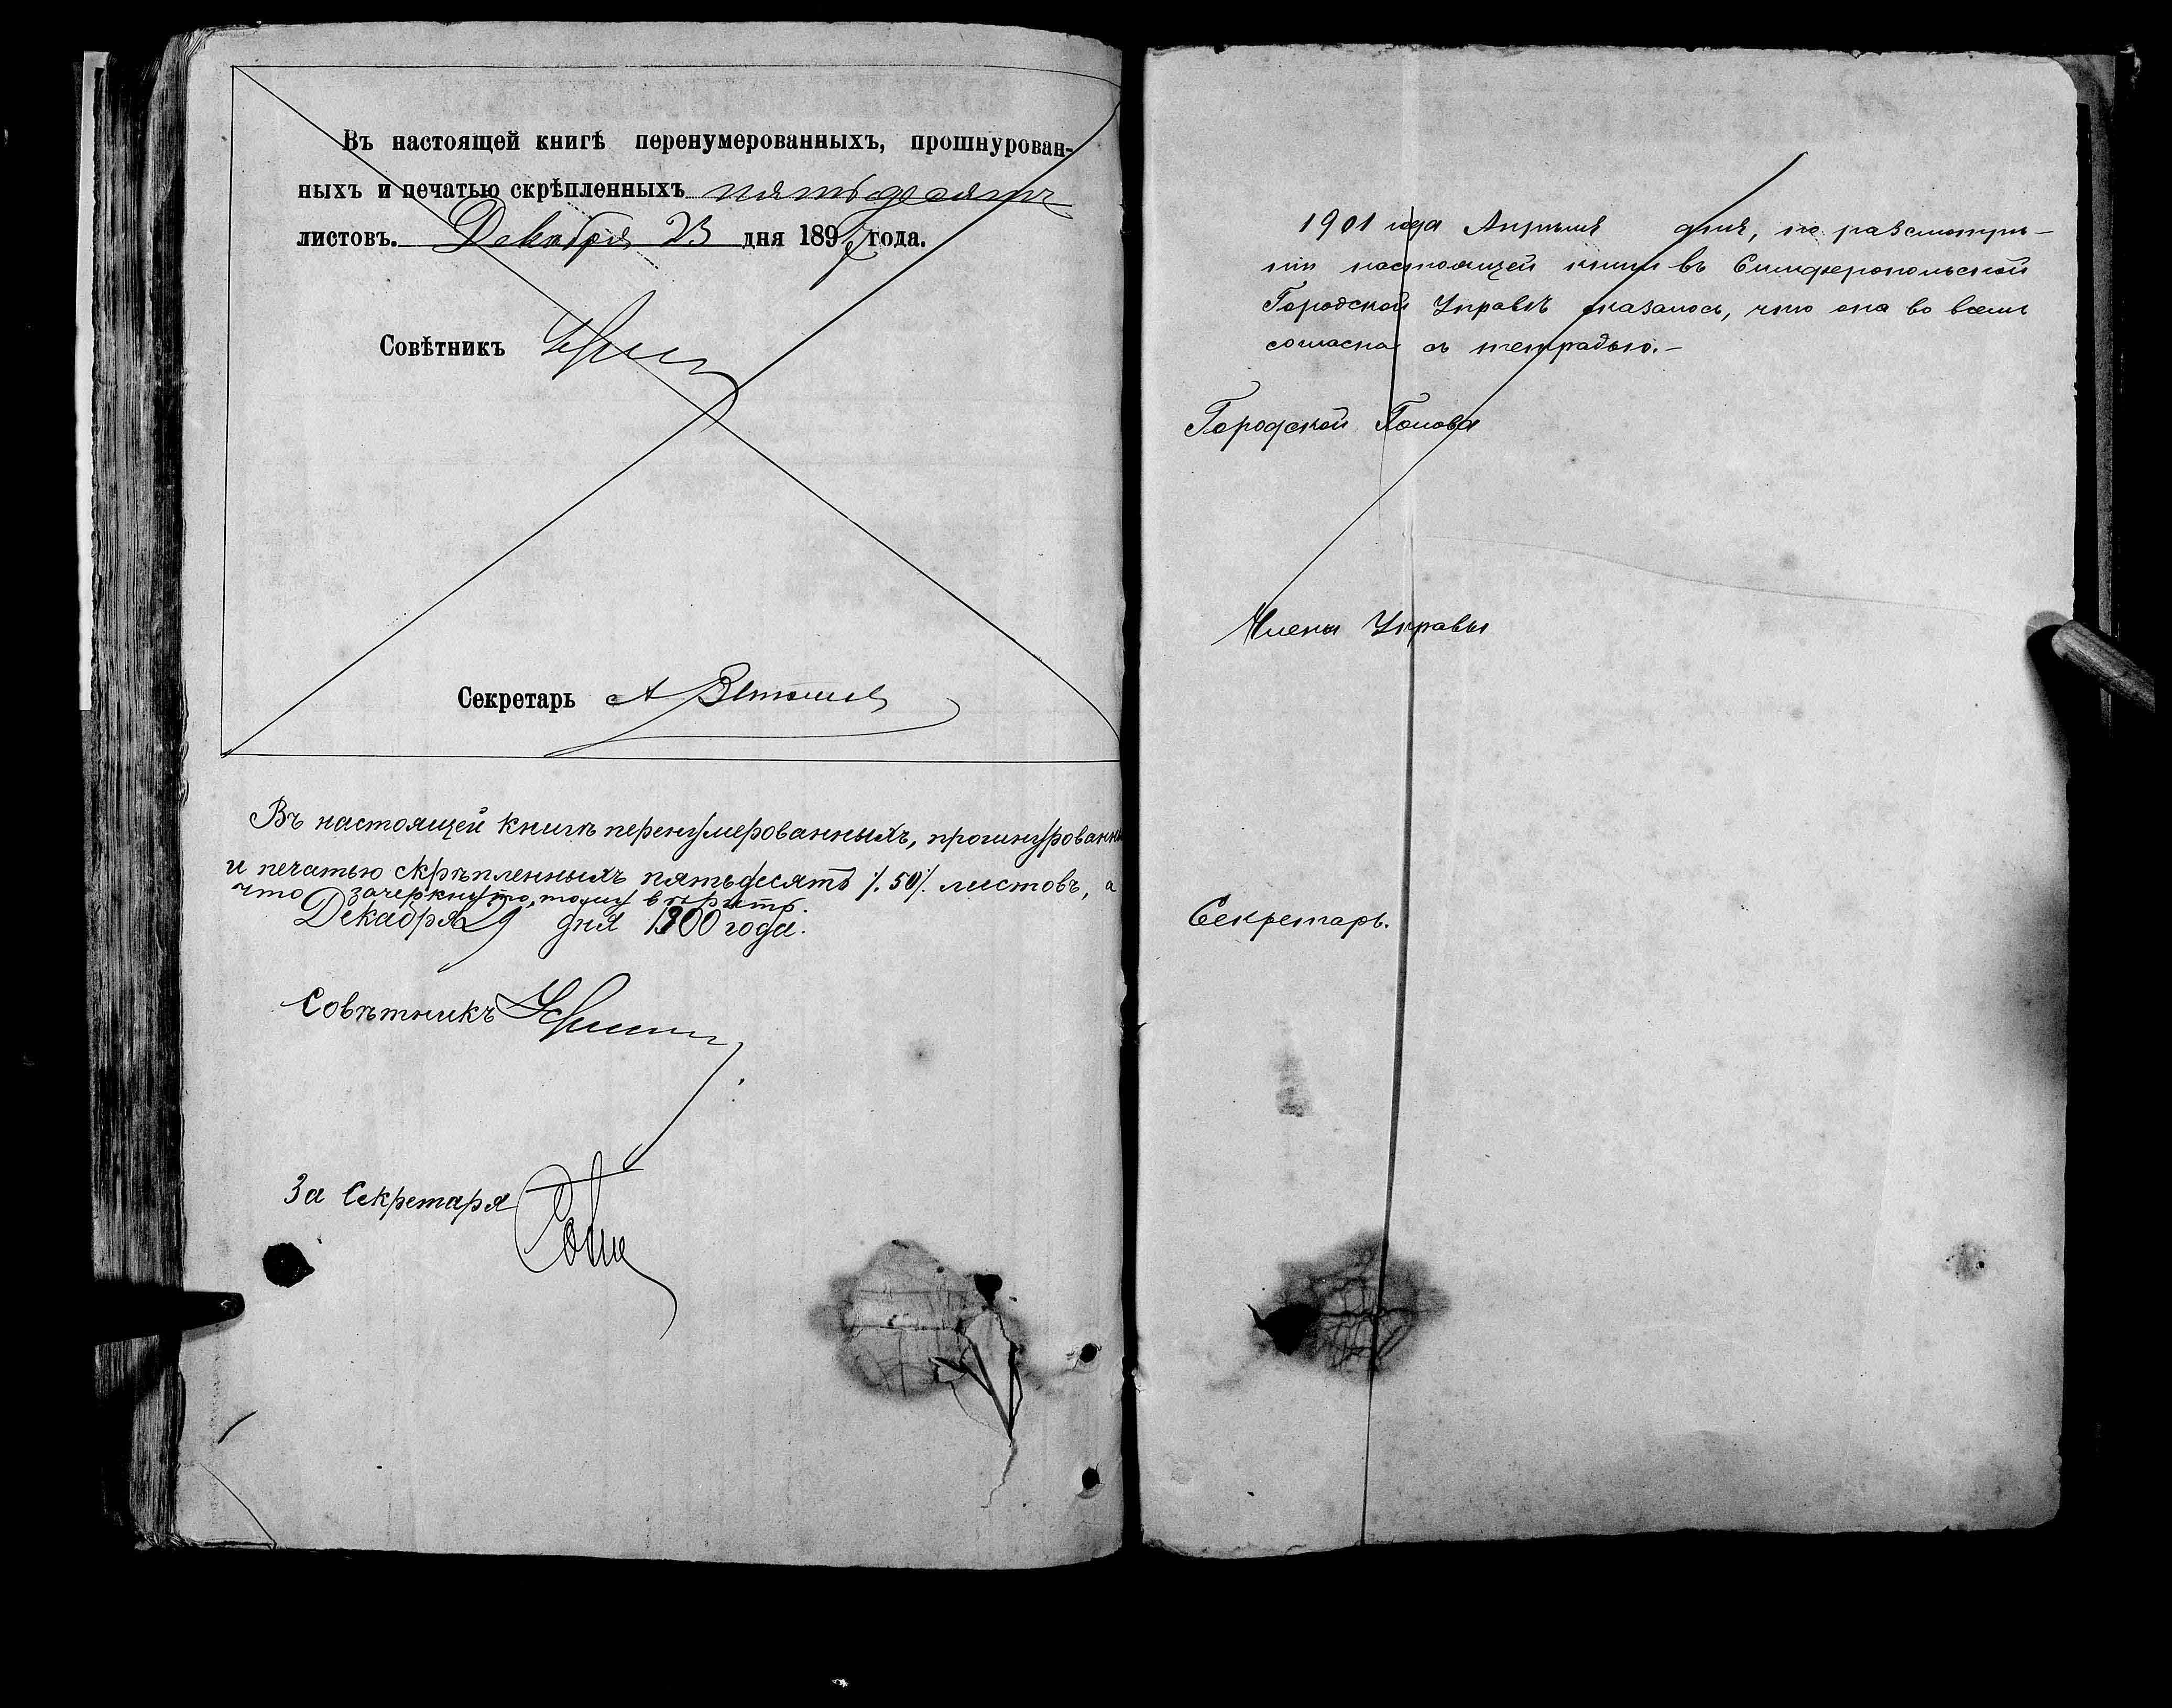 Въ настоящей книгѣ перенумерованныхъ, прошнурован-
ныхъ и печатью скрѣпленныхъ пятьдесятъ
листовъ. Декабря 23 дня 1897 года.
Совѣтникъ
Секретарь А
Въ настоящей книгѣ перенумерованныхъ, прошнурованны
и печатью скрѣпленныхъ пятьдесятъ ·/.50/. листовъ, а
что зачеркнуто, тому вѣрить.
Декабря 29 дня 1900 года.
Совѣтникъ
За Секретаря
1901 года Апрѣля дня, по разсмотрѣ-
нiи настоящей книги въ Симферопольской
Городской Управѣ оказалось, что она во всемъ
согласна съ тетрадью.-
Городской Голова
Члены Управы
Секретарь.